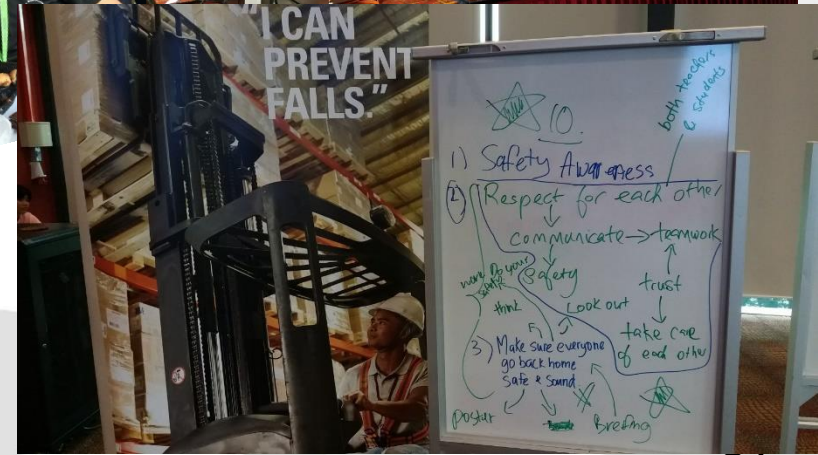 "I CAN
PREVENT
FALLS."
10.
both teachers
& students
1) Safety Awareness
2) Respect for each other
communicate → teamwork
Safety
trust
think
Look out
take care
of each other
3) Make sure everyone
go back home
safe & sound
poster
Breifing